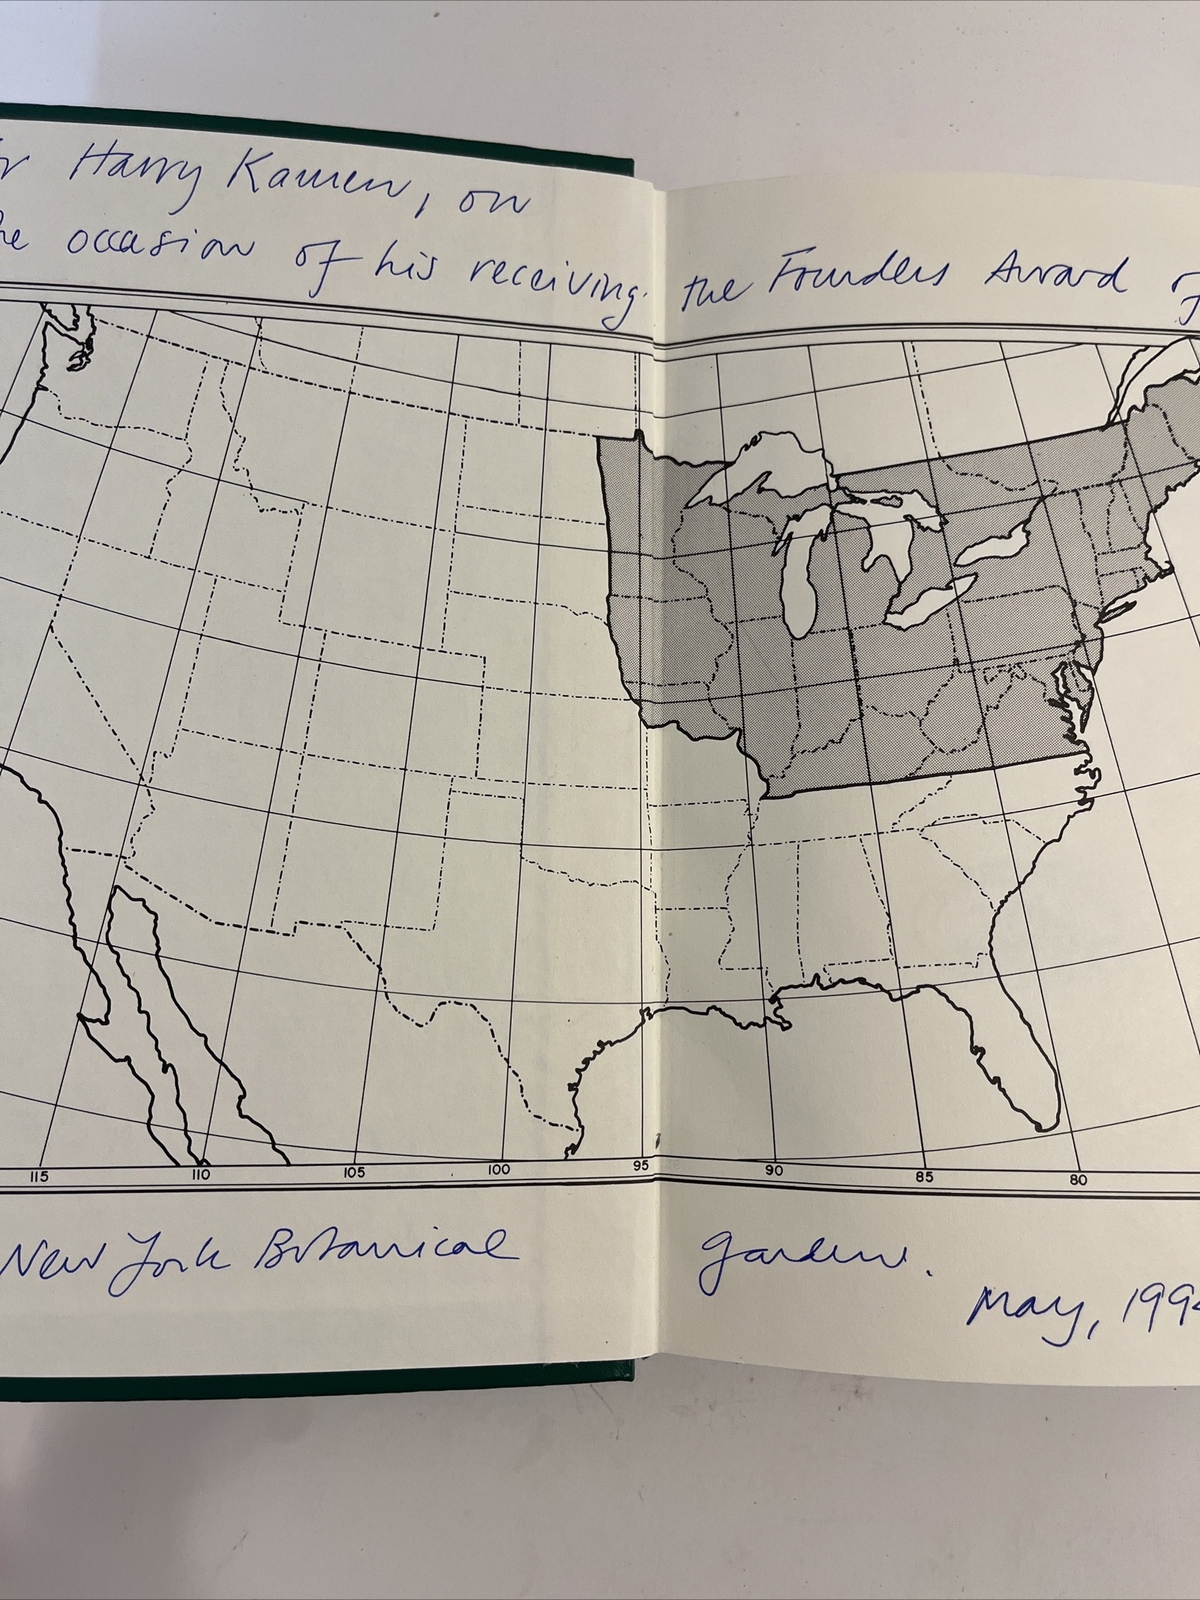 Harry Kamen, on
occasion of his receiving the Founders Award
115 110 105 100 95 90 85 80
New York Botanical Garden.
May, 199